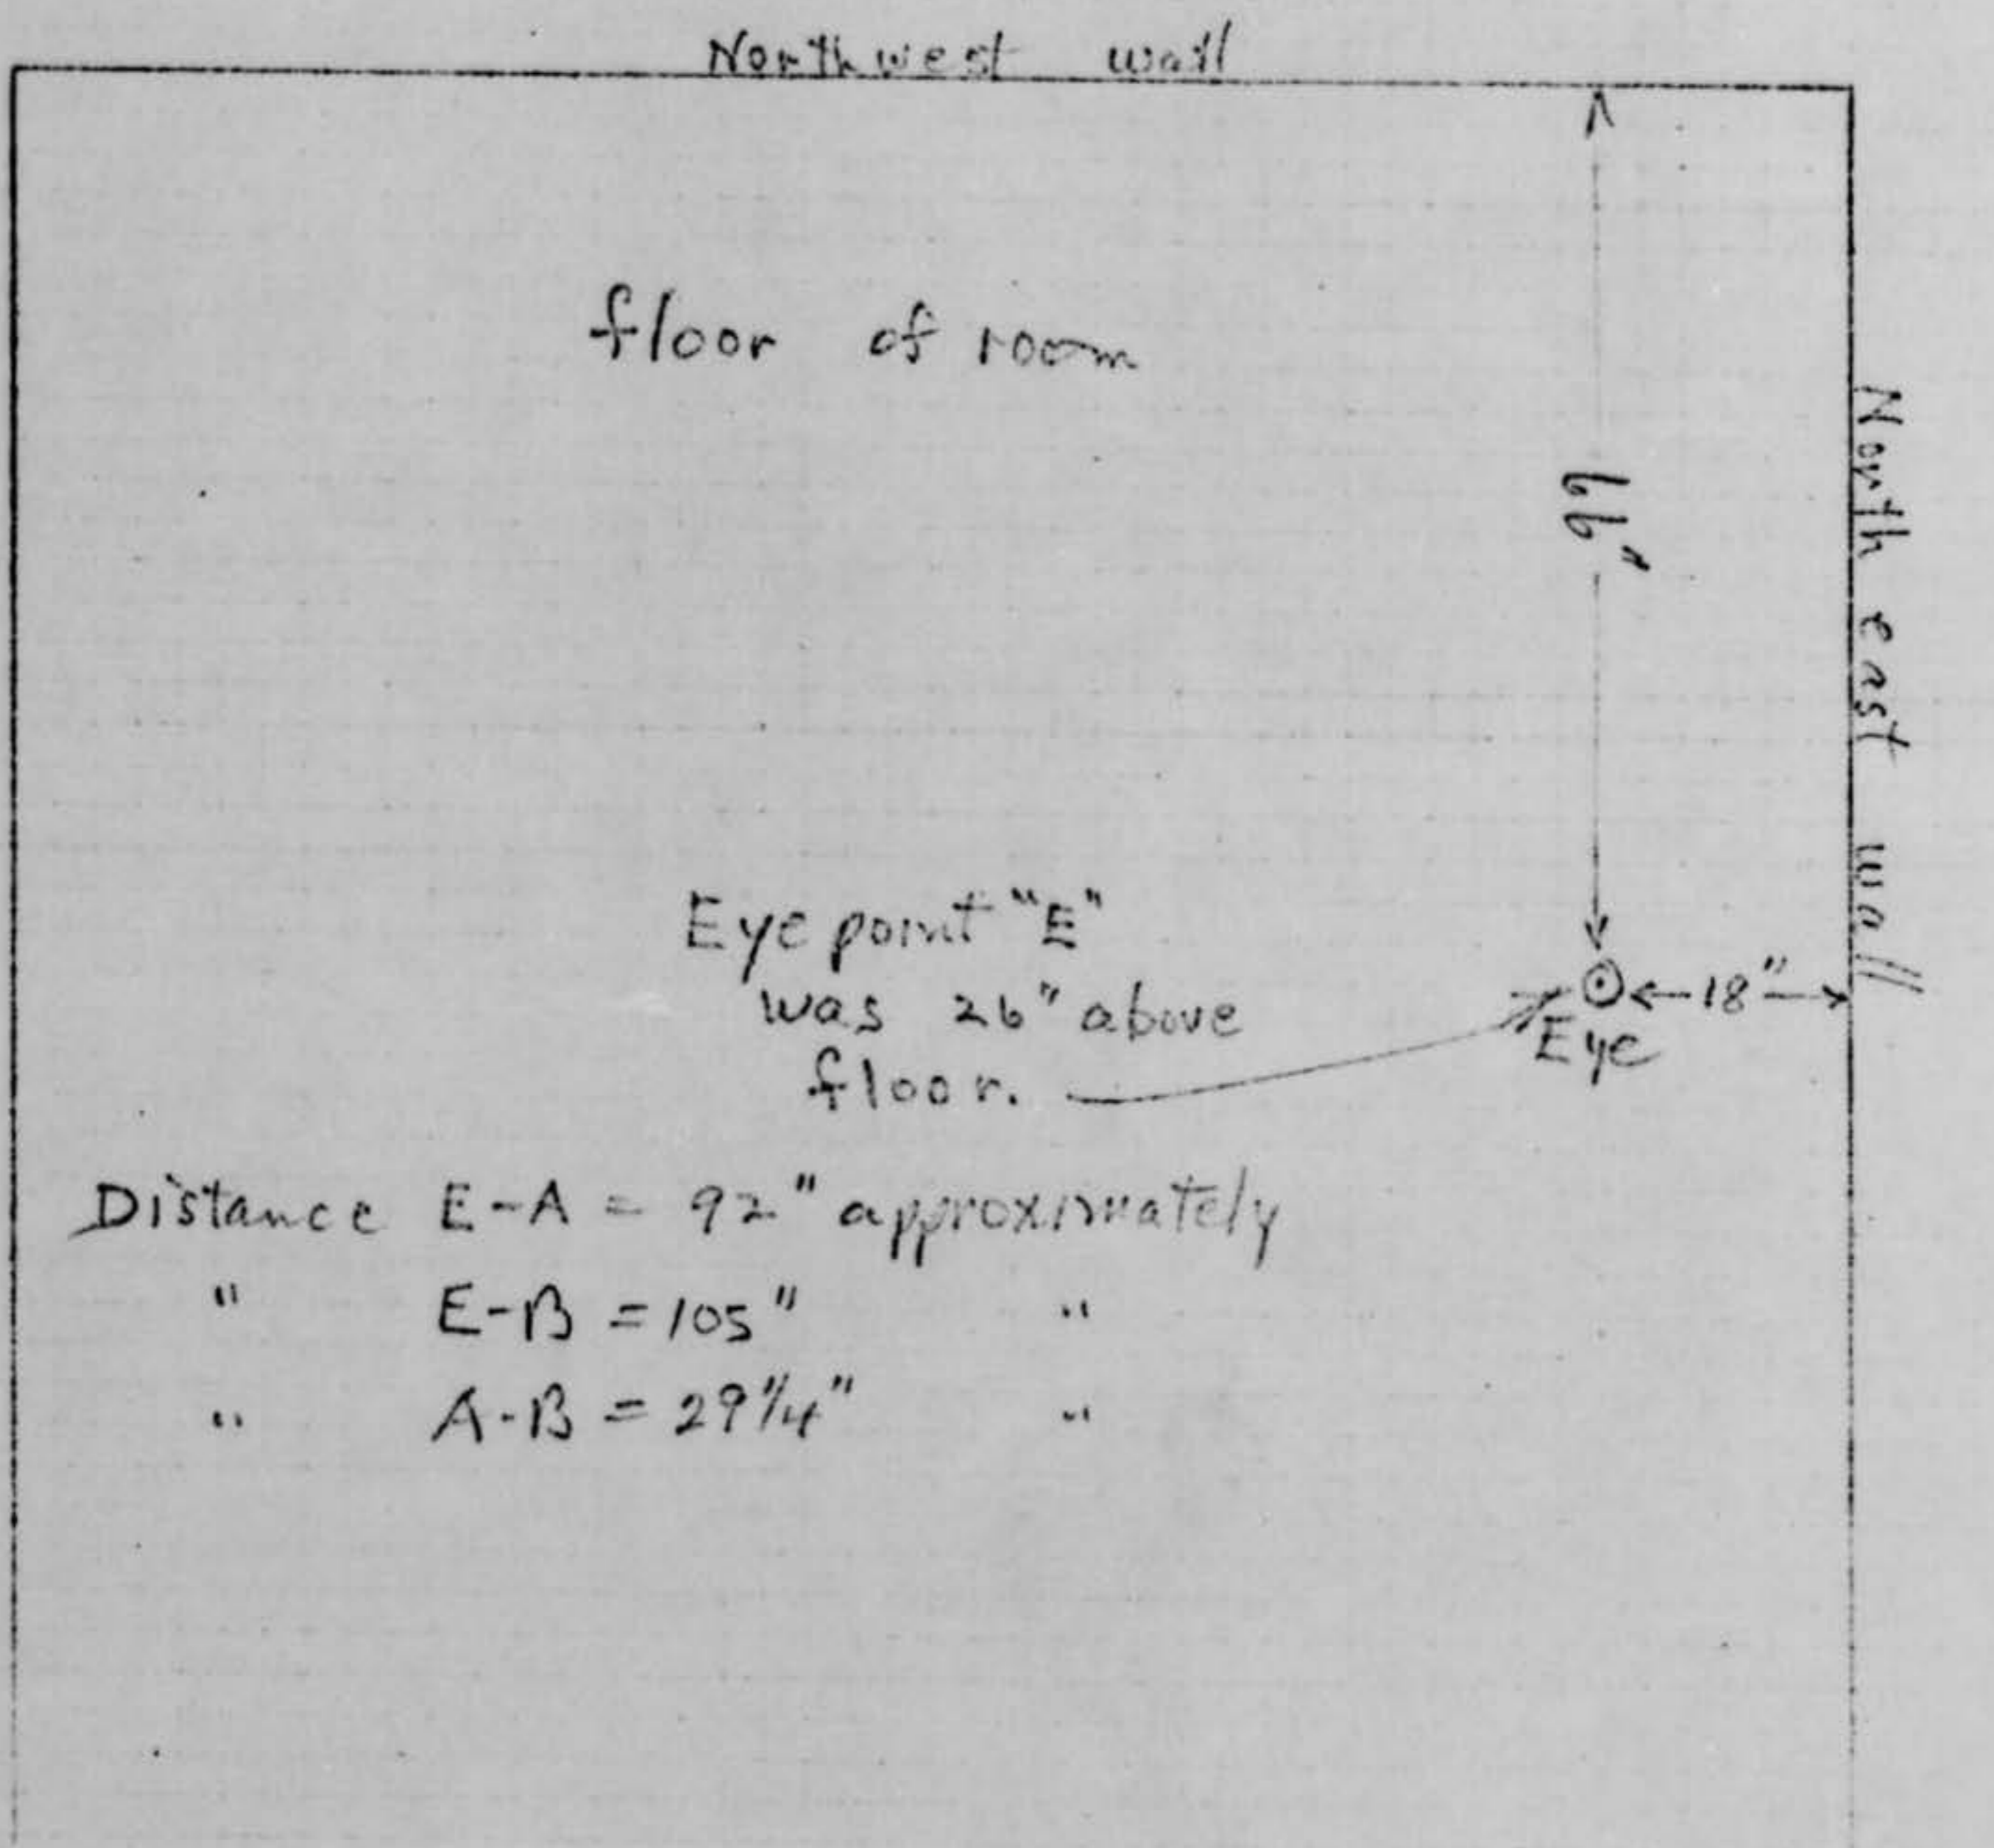 Northwest wall
floor of room
66"
North east wall
Eye point "E"
was 26" above
floor.
18"
Eye
Distance E-A = 92" approximately
" E-B = 105" "
" A-B = 29 1/4" "